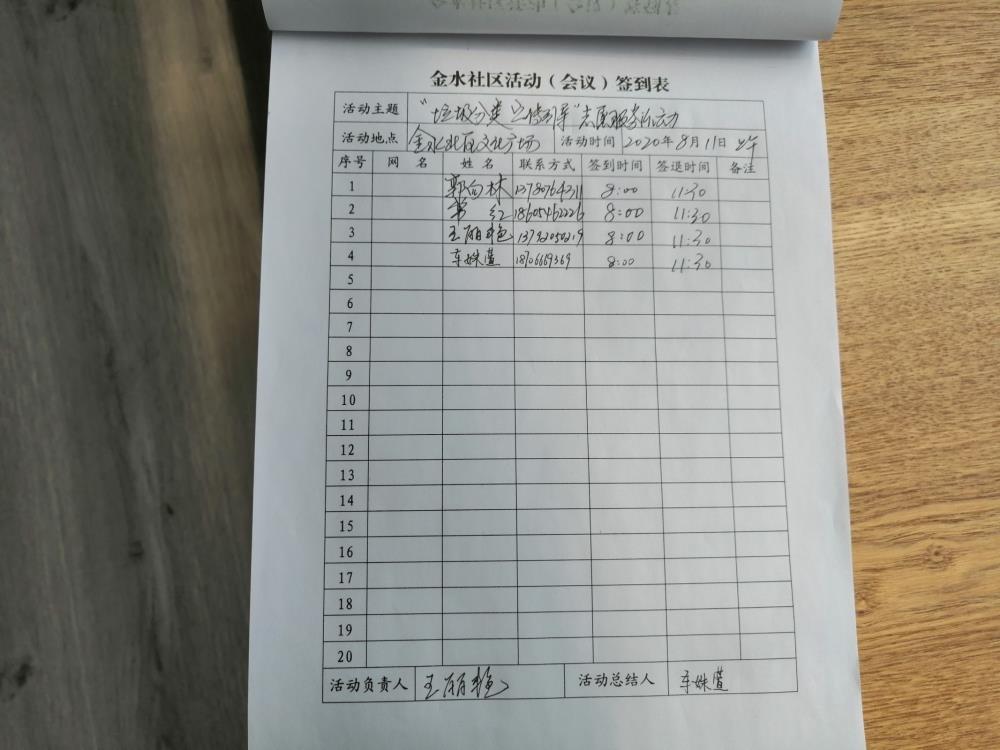 金水社区活动（会议）签到表
活动主题 "垃圾分类 宣传引导"志愿服务活动
活动地点 金水社区文化广场 活动时间 2020年8月11日 上午
序号 网 名 姓 名 联系方式 签到时间 签退时间 备注
1 郭向林 13780764311 8:00 11:30
2 红 18605462226 8:00 11:30
3 王丽艳 13792050219 8:00 11:30
4 车姝萱 18706669369 8:00 11:30
5
6
7
8
9
10
11
12
13
14
15
16
17
18
19
20
活动负责人 王丽艳 活动总结人 车姝萱